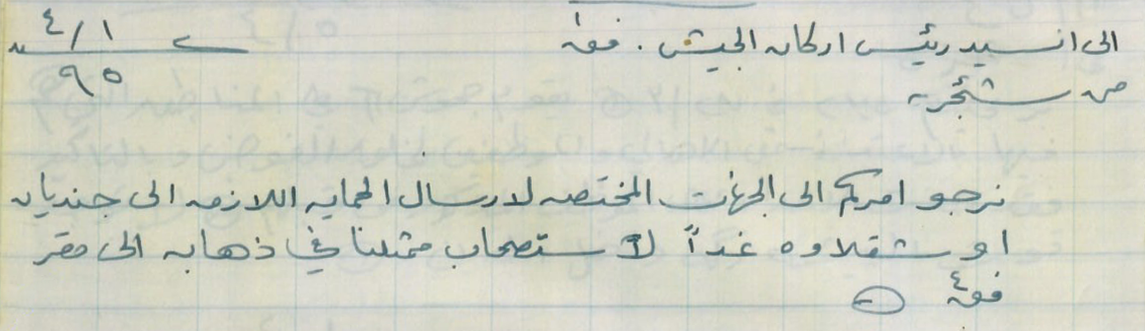 الى السيد رئيس اركان الجيش . فق١
٤/١
٩٥
من
نرجو امركم الى الجهات المختصه لارسال الحمايه اللازمه الى جنديان
او شقلاوه غداً لاستصحاب ممثلنا في ذهابه الى مقر
فق٤